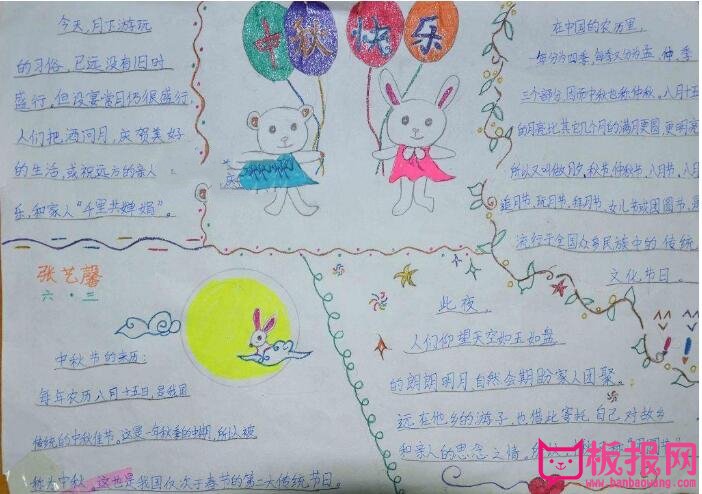 今天，月下游玩
的习俗，已远没有旧时
盛行。但设宴赏月仍很盛行，
人们把酒问月，庆贺美好
的生活，或祝远方的亲人
乐，和家人“千里共婵娟”。
中秋快乐
在中国的农历里，
一年分为四季，每季又分为孟 仲 季
三个部分，因而中秋也称仲秋。八月十五
的月亮比其它几个月的满月更圆，更明亮
所以又叫做月夕，秋节仲秋节、八月节、八月
追月节、玩月节、拜月节、女儿节或团圆节，是
流行于全国众多民族中的传统
文化节日。
张艺馨
六·三
中秋节的来历：
每年农历八月十五日，是我国
传统的中秋佳节。这是一年秋季的中期，所以被
称为中秋。这也是我国仅次于春节的第二大传统节日。
此夜，
人们仰望天空如玉如盘
的朗朗明月，自然会期盼家人团聚。
远在他乡的游子，也借此寄托自己对故乡
和亲人的思念之情。
板报网
www.banbaowang.com